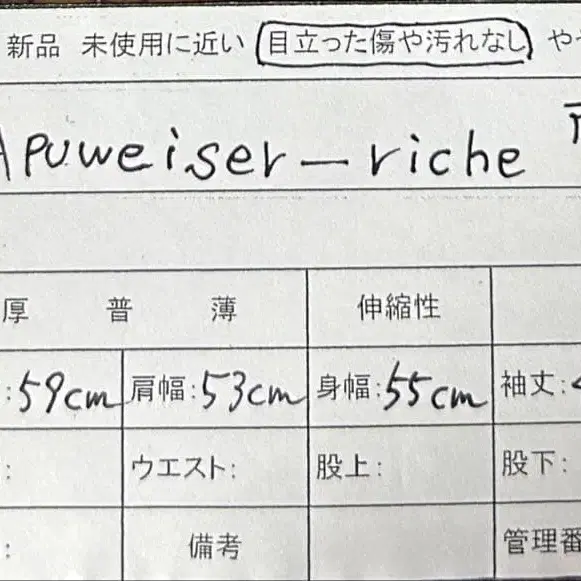 新品 未使用に近い 目立った傷や汚れなし やや
Apuweiser-riche
厚 普 薄 伸縮性
:59cm 肩幅:53cm 身幅:55cm 袖丈:
: ウエスト: 股上: 股下:
: 備考 管理番